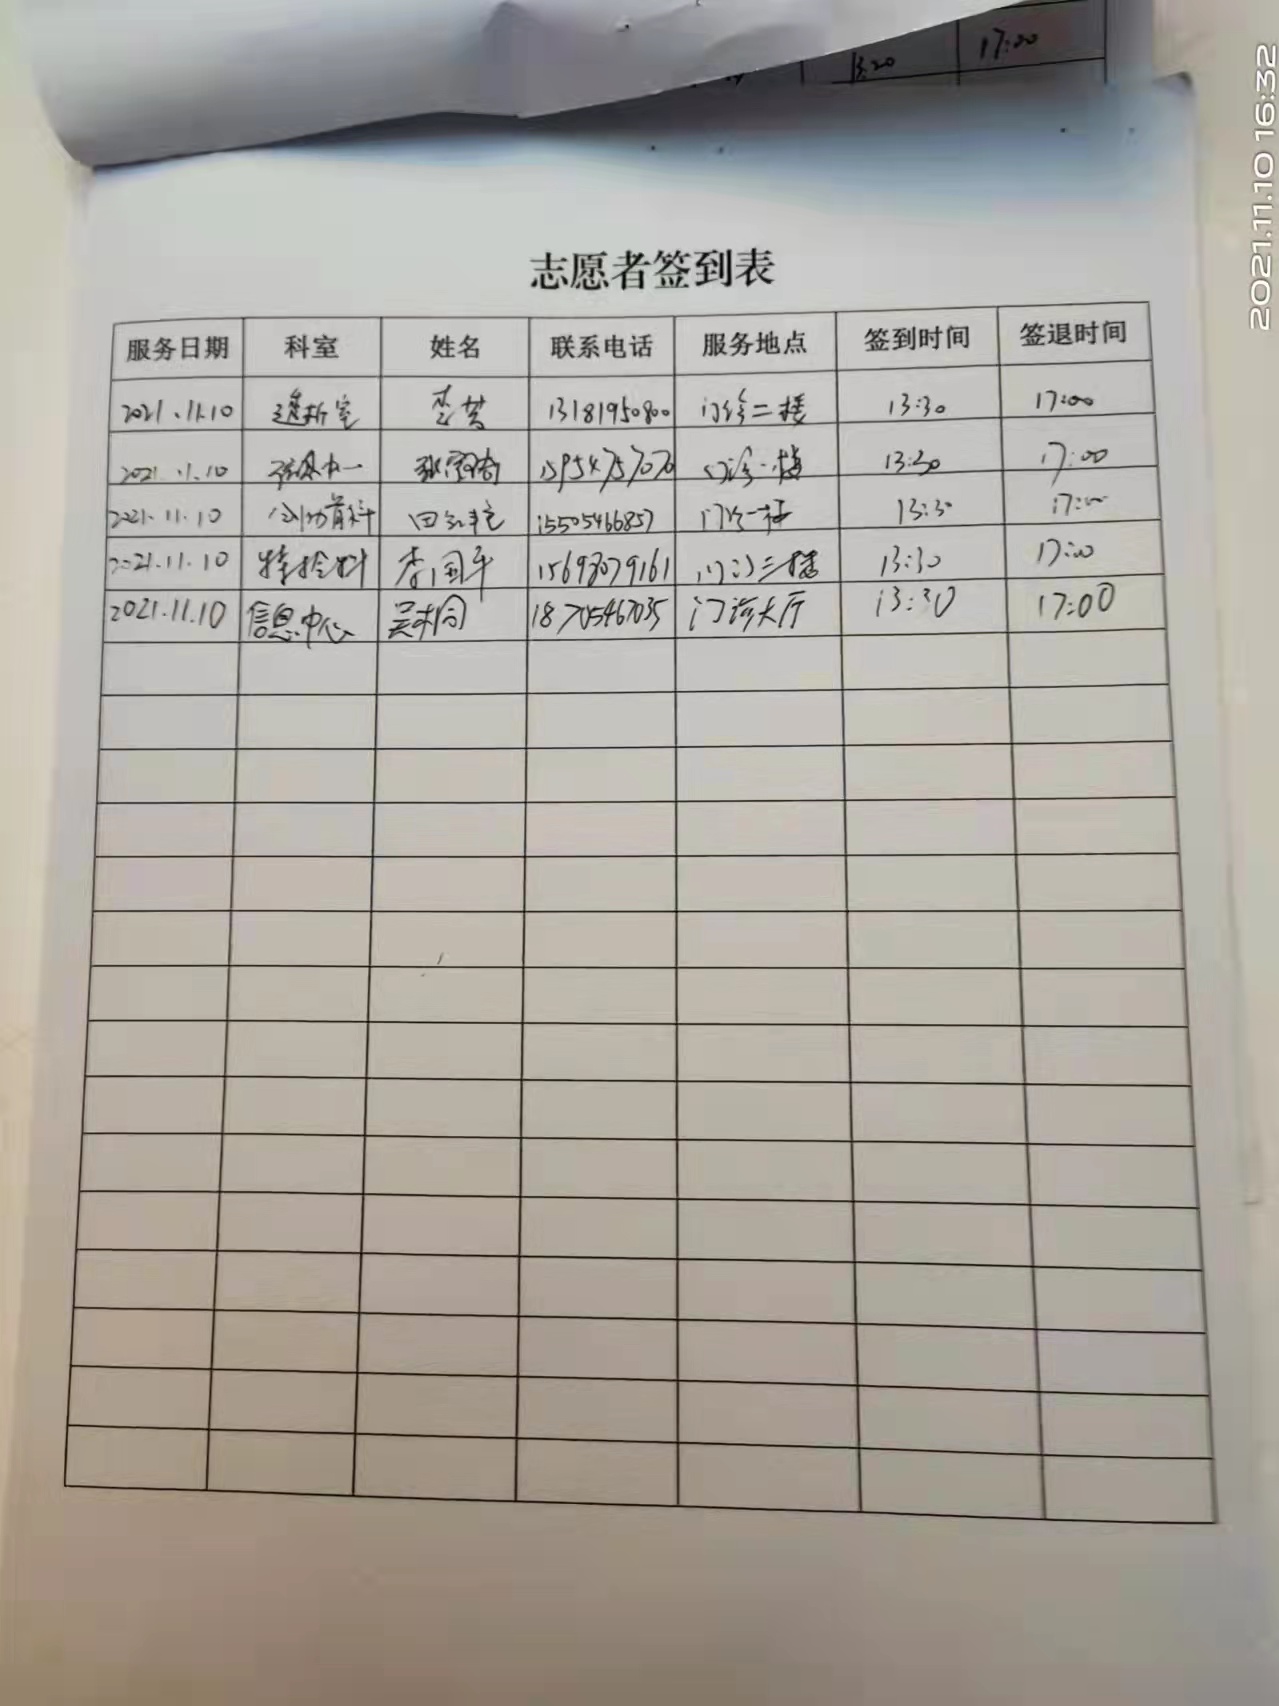 13:20 17:00
2021.11.10 16:32
志愿者签到表
服务日期 科室 姓名 联系电话 服务地点 签到时间 签退时间
2021.11.10 透析室 李 13181950800 门诊二楼 13:30 17:00
2021.11.10 门诊一楼 13:30 17:00
2021.11.10 田 15505466857 门诊一楼 13:30 17:00
2021.11.10 特检科 李国平 15698079161 门诊三楼 13:30 17:00
2021.11.10 信息中心 吴树同 18705467035 门诊大厅 13:30 17:00